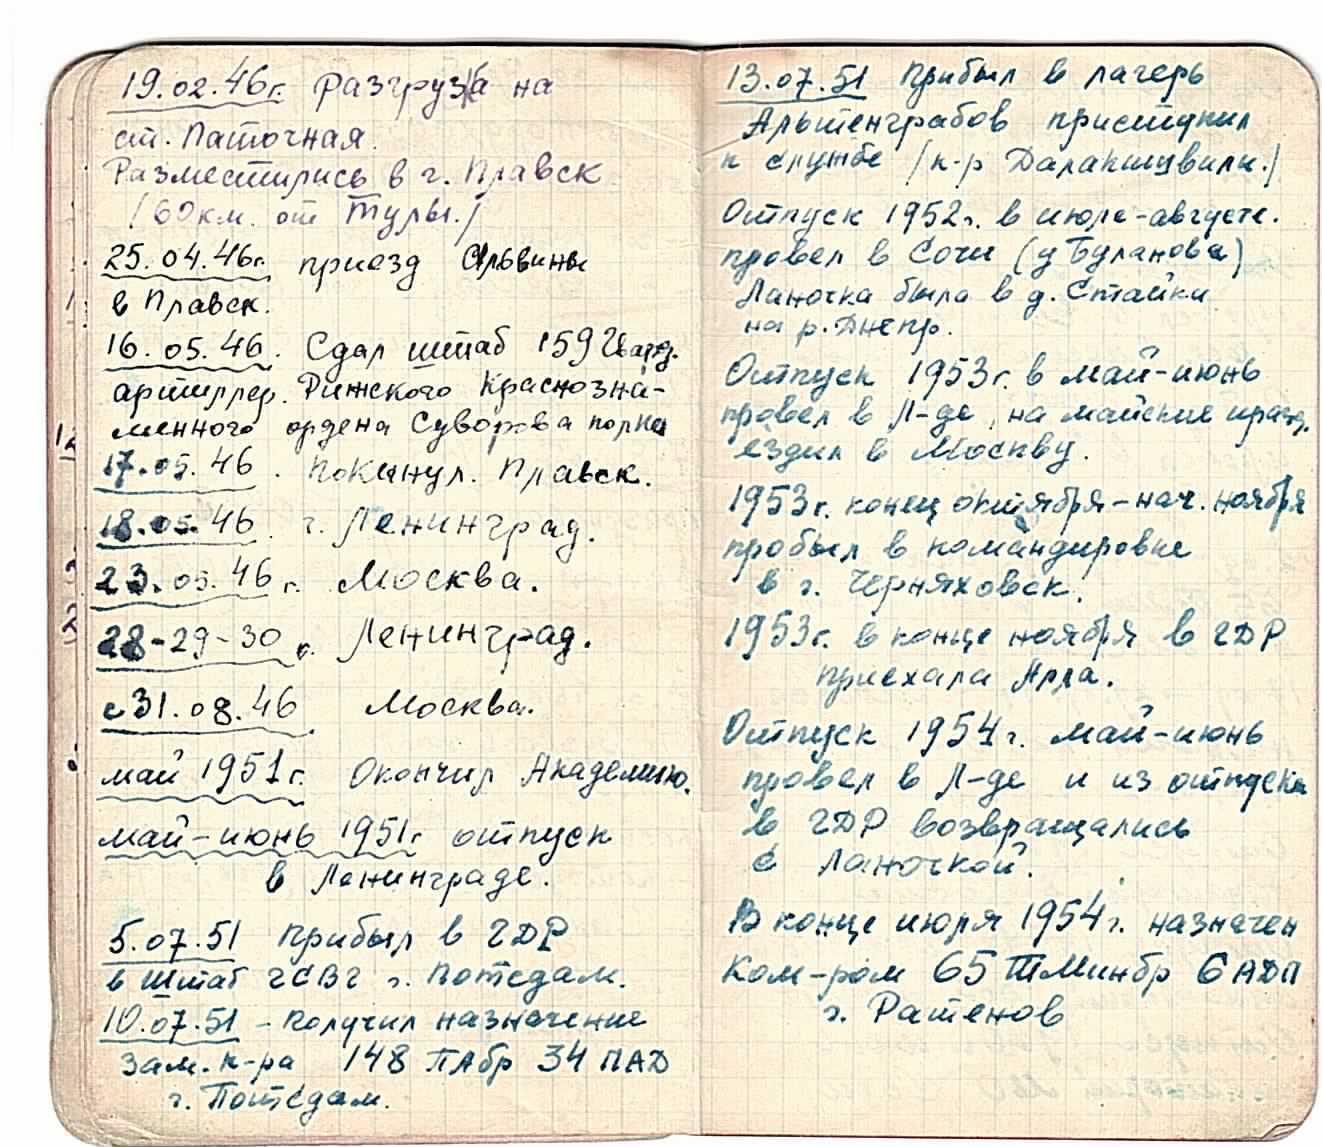 19.02.46г. Разгрузка на
ст. Паточная.
Разместились в г. Плавск
/60 км. от Тулы./
25.04.46г. приезд Альвины
в Плавск.
16.05.46. Сдал штаб 159 Гвард.
артиллер. Рижского Краснозна-
менного ордена Суворова полка
17.05.46. Покинул. Плавск.
18.05.46. г. Ленинград.
23.05.46 г. Москва.
28-29-30 г. Ленинград.
с 31.08.46 Москва.
май 1951 г. Окончил Академию.
май-июнь 1951г отпуск
в Ленинграде.
5.07.51 прибыл в ГДР
в Штаб ГСВГ г. Потсдам.
10.07.51 - получил назначение
зам. к-ра 148 ПАбр 34 ПАД
г. Потсдам.
13.07.51 Прибыл в лагерь
Альтенграбов приступил
к службе /к-р Далакишвили./
Отпуск 1952г. в июле-августе.
провел в Сочи (у Буланова)
Ланочка была в д. Стайки
на р. Днепр.
Отпуск 1953г. в май-июнь
провел в Л-де, на майские празд.
ездил в Москву.
1953г. конец октября-нач. ноября
пробыл в командировке
в г. Черняховск.
1953г. в конце ноября в ГДР
приехала Алла.
Отпуск 1954г. май-июнь
провел в Л-де и из отпуска
в ГДР возвращались
с Ланочкой.
В конце июля 1954г. назначен
Ком-ром 65 ТМинбр 6 АДП
г. Ратенов